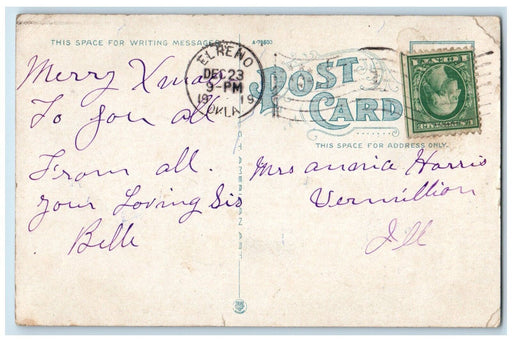 THIS SPACE FOR WRITING MESSAGES
POST CARD
THIS SPACE FOR ADDRESS ONLY.
EL RENO
DEC 23
9-PM
1919
OKLA.
Merry Xmas
To you all
From all.
your Loving Sis
Belle
Mrs annia Harris
Vermillion
Ill